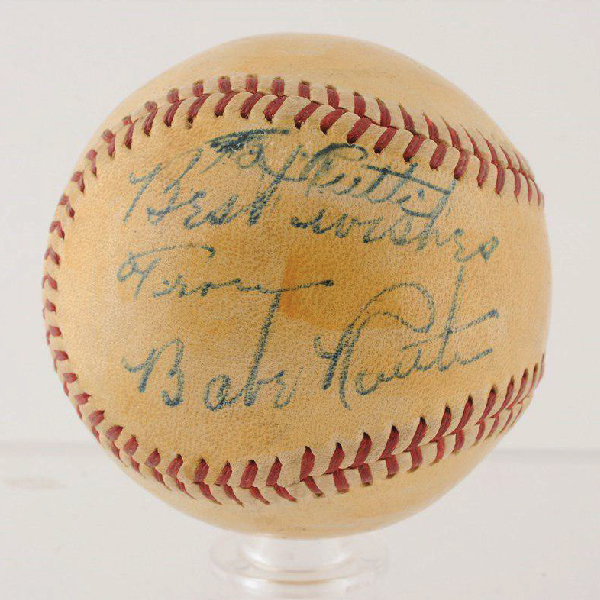 To Ruth
Best wishes
From
Babe Ruth